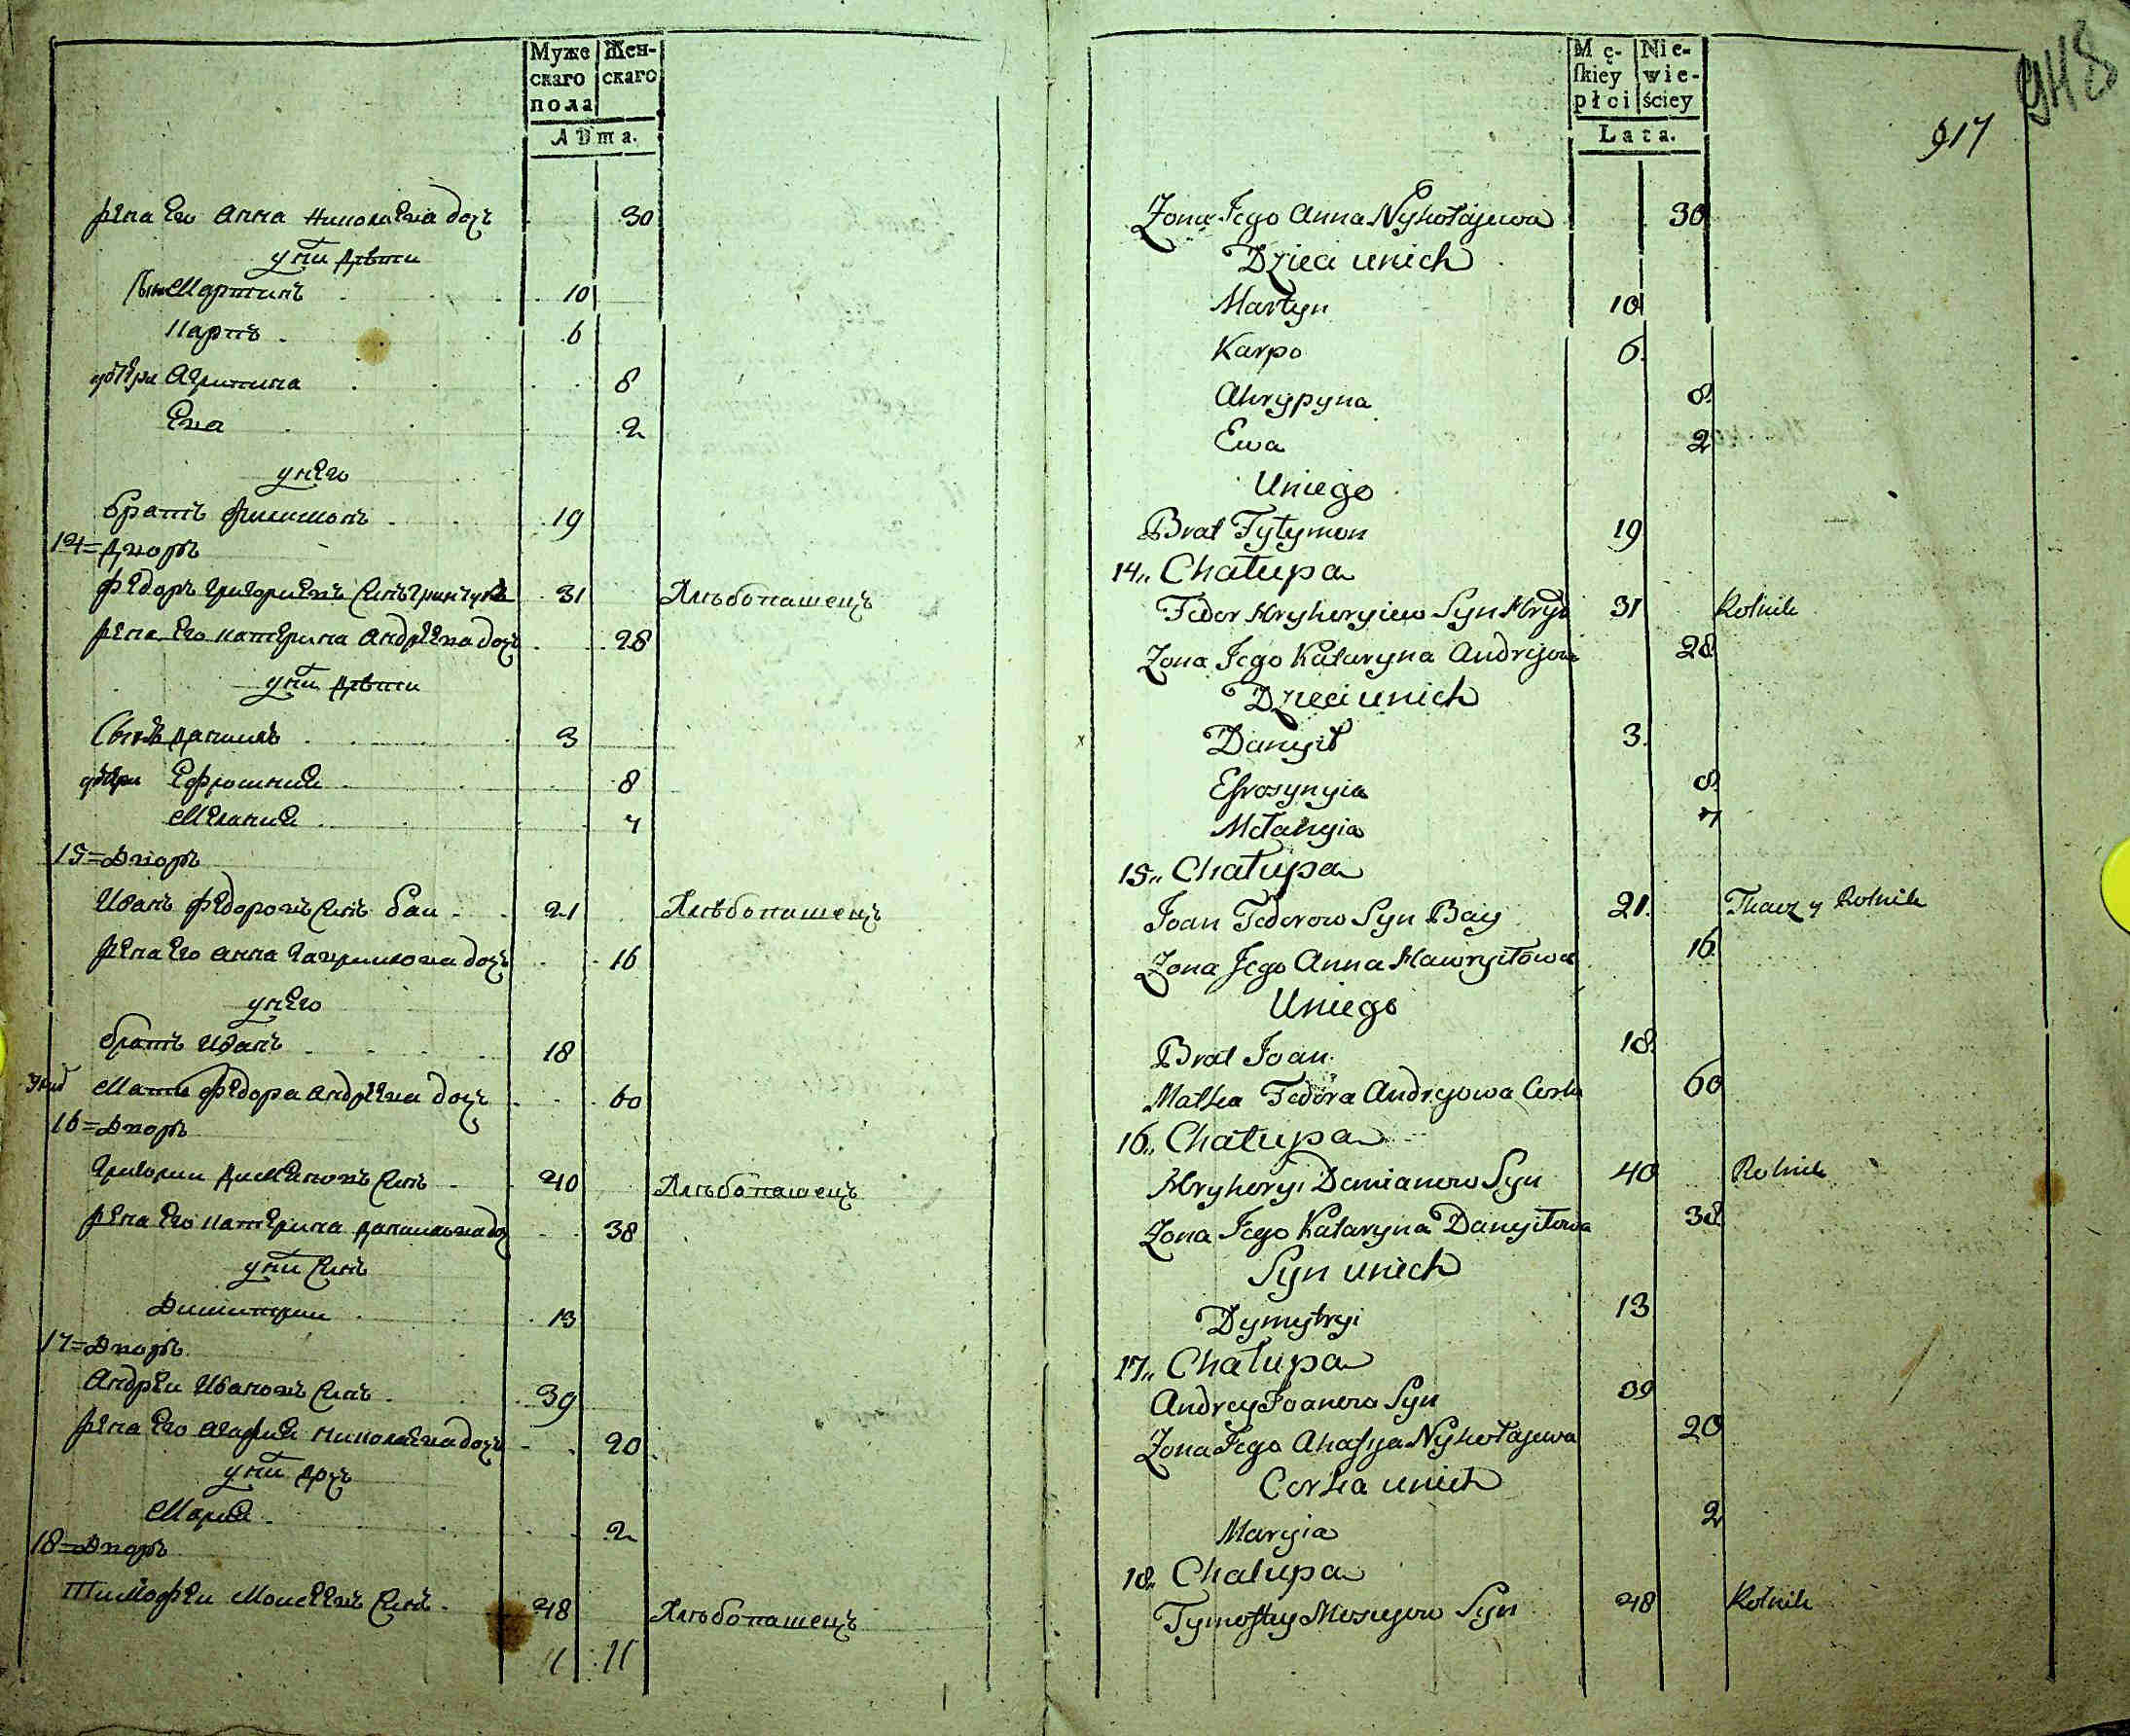 Муже скаго пола
Жен- скаго
лѣта.
жена его Анна Николаева дочъ 30
у них дѣти
сын Мартинъ 10
Карпъ 6
дочери Агрипина 8
Ева 2
у него
братъ Филимонъ 19
14=Дворъ
Федоръ Григориевъ синъ Гринчукъ 31 Хлѣбопашецъ
жена его Катерина Андреева дочъ 28
у них дѣти
Сынъ Данилъ 3
дочери Ефросиния 8
Мелания 7
15=Дворъ
Иванъ Федоровъ синъ Баи 21 Хлѣбопашецъ
жена его Анна Гаврилова дочъ 16
у него
братъ Иванъ 18
Мать Федора Андреева дочъ 60
16=Дворъ
Григории Демяновъ синъ 40 Хлѣбопашецъ
жена его Катерина Данилова доч 38
у них синъ
Димитрии 13
17=Дворъ
Андреи Ивановъ синъ 39
жена его Агафия Николаева дочъ 20
у них дочъ
Мария 2
18=Дворъ
Тимофеи Моисеевъ синъ 48 Хлѣбопашецъ
11 11
948
917
Mę- ſkiey płci
Nie- wie- ściey
Lata.
Zona Jego Anna Nykołajewa 30
Dzieci unich
Martyn 10
Karpo 6.
Ahrypyna 8.
Ewa 2
Uniego
Brat Fyłymon 19
14„ Chałupa
Fedor Hryhoryiew Syn Hryn 31 Rolnik
Zona Jego Kataryna Andryjow 28
Dzieci unich
Danyił 3.
Efrosynyia 8.
Mełanyia 7
15„ Chałupa
Joan Fedorow Syn Bay 21. Tkacz y Rolnik
Zona Jego Anna Hawryiłowa 16
Uniego
Brat Joan 18.
Matka Fedora Andryjowa Corka 60
16„ Chałupa
Hryhoryi Demianow Syn 40 Rolnik
Zona Jego Kataryna Danyiłowa 38
Syn unich
Dymytryi 13
17„ Chałupa
Andrey Joanow Syn 39
Zona Jego Ahafya Nykołajewa 20
Corka unich
Maryia 2
18„ Chałupa
Tymoftey Mosiejow Syn 48 Rolnik